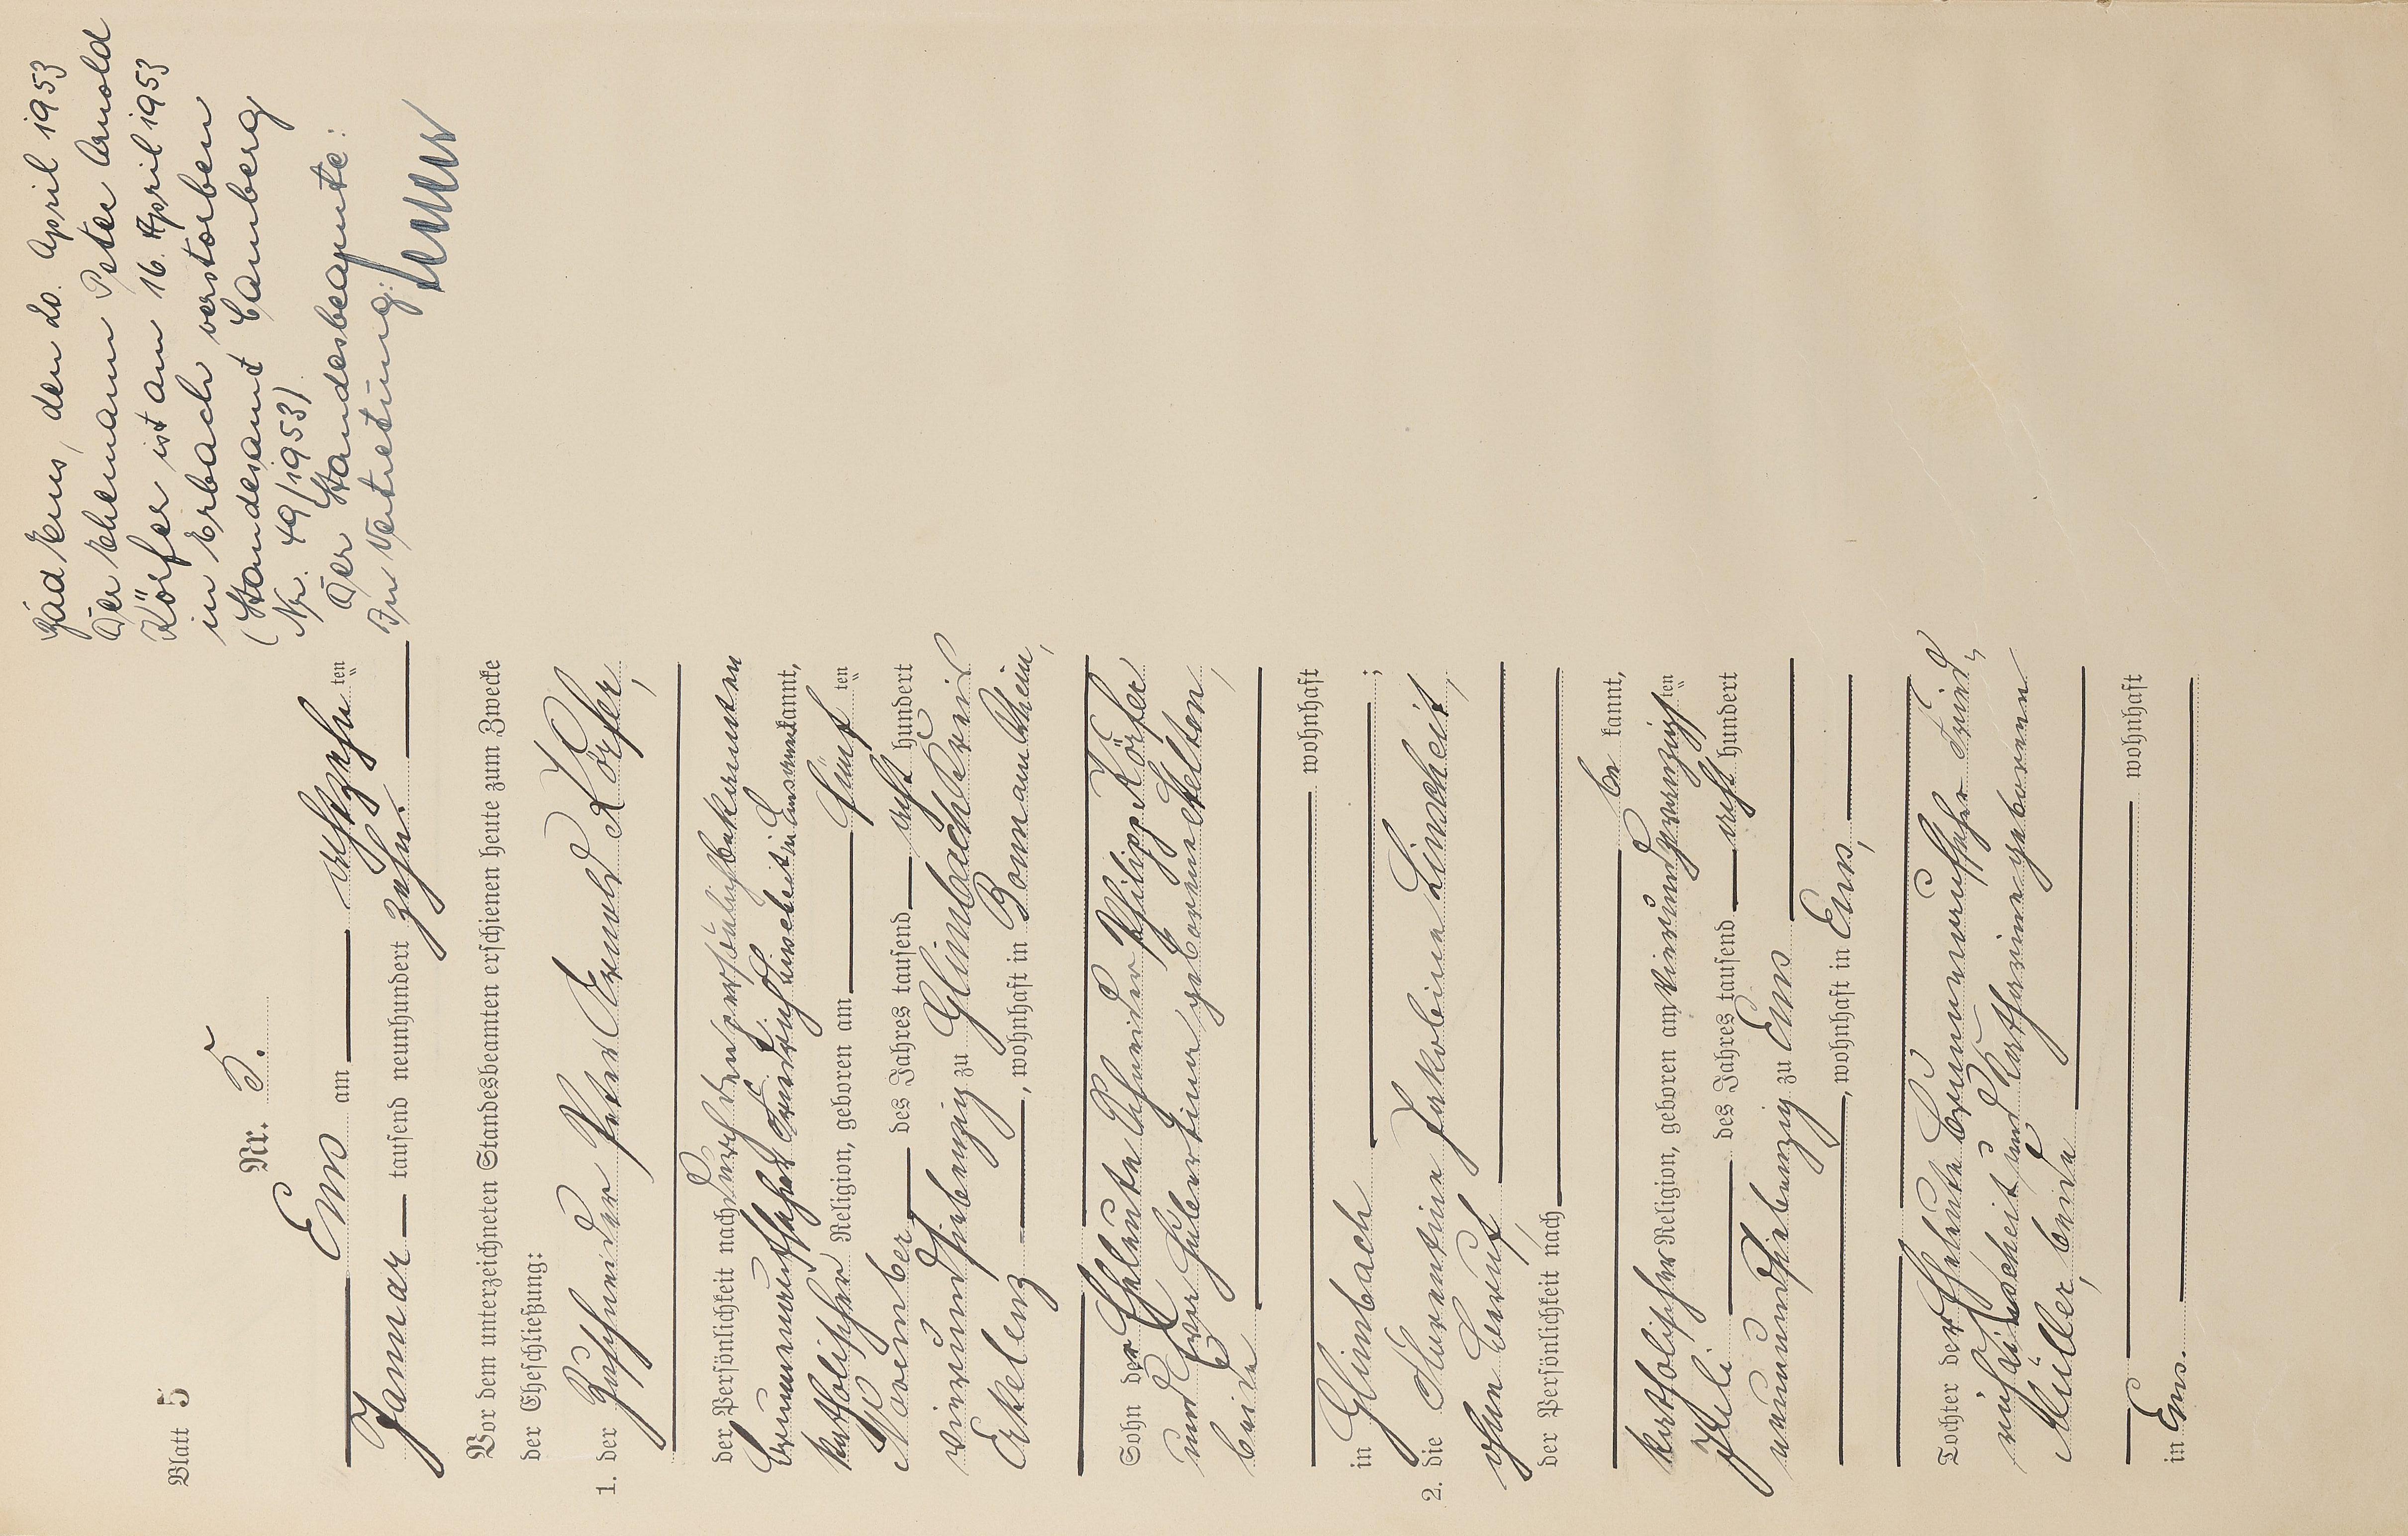 Blatt 5
Nr. 5.
Ems am achtzehnten
Januar tausend neunhundert zehn.
Vor dem unterzeichneten Standesbeamten erschienen heute zum Zwecke
der Eheschließung:
1. der Zuschneider Peter Arnold Körfer,
der Persönlichkeit nach durch den persönlich bekannten
Brunnenaufseher Friedrich Linscheit in Ems anerkannt,
katholischer Religion, geboren am fünften
November des Jahres tausend acht hundert
vierundsiebenzig zu Glimbach Kreis
Erkelenz, wohnhaft in Bonn am Rhein,
Sohn der Eheleute Schneider Philipp Körfer
und Eva Hubertina geborene Stelten,
beide
wohnhaft
in Glimbach;
2. die Florentine Jakobine Linscheit,
ohne Beruf,
der Persönlichkeit nach
be kannt,
katholischer Religion, geboren am vierundzwanzigsten
Juli des Jahres tausend acht hundert
neunundsiebenzig zu Ems
, wohnhaft in Ems,
Tochter der Eheleute Brunnenaufseher Fried-
rich Linscheit und Katharina geborenen
Müller, beide
wohnhaft
in Ems.
Bad Ems, den 20. April 1953
Der Ehemann Peter Arnold
Körfer ist am 16. April 1953
in Erbach verstorben
(Standesamt Camberg
Nr. 49/1953)
Der Standesbeamte:
In Vertretung: